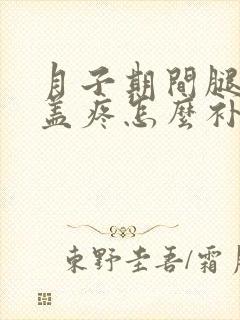 月子期間腿
盖疼怎麼补
東野圭吾/霜月